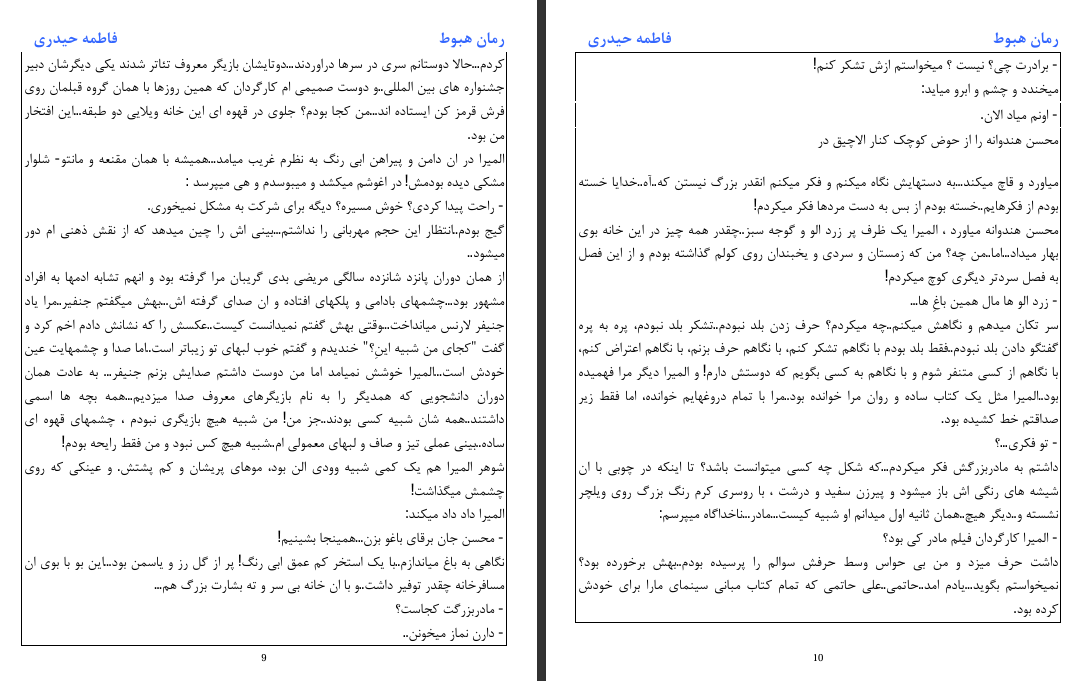 رمان هبوط
فاطمه حیدری
کردم...حالا دوستانم سری در سرها دراوردند...دوتایشان بازیگر معروف تئاتر شدند یکی دیگرشان دبیر
جشنواره های بین المللی..و دوست صمیمی ام کارگردان که همین روزها با همان گروه قبلمان روی
فرش قرمز کن ایستاده اند...من کجا بودم؟ جلوی در قهوه ای این خانه ویلایی دو طبقه...این افتخار
من بود.
المیرا در ان دامن و پیراهن ابی رنگ به نظرم غریب میامد...همیشه با همان مقنعه و مانتو- شلوار
مشکی دیده بودمش! در اغوشم میکشد و میبوسدم و هی میپرسد :
- راحت پیدا کردی؟ خوش مسیره؟ دیگه برای شرکت به مشکل نمیخوری.
گیج بودم..انتظار این حجم مهربانی را نداشتم...بینی اش را چین میدهد که از نقش ذهنی ام دور
میشود..
از همان دوران پانزد شانزده سالگی مریضی بدی گریبان مرا گرفته بود و انهم تشابه ادمها به افراد
مشهور بود...چشمهای بادامی و پلکهای افتاده و ان صدای گرفته اش...بهش میگفتم جنفیر..مرا یاد
جنیفر لارنس میانداخت...وقتی بهش گفتم نمیدانست کیست..عکسش را که نشانش دادم اخم کرد و
گفت "کجای من شبیه اینِ؟" خندیدم و گفتم خوب لبهای تو زیباتر است..اما صدا و چشمهایت عین
خودش است...المیرا خوشش نمیامد اما من دوست داشتم صدایش بزنم جنفیر... به عادت همان
دوران دانشجویی که همدیگر را به نام بازیگرهای معروف صدا میزدیم...همه بچه ها اسمی
داشتند..همه شان شبیه کسی بودند..جز من! من شبیه هیچ بازیگری نبودم ، چشمهای قهوه ای
ساده،بینی عملی تیز و صاف و لبهای معمولی ام..شبیه هیچ کس نبود و من فقط رایحه بودم!
شوهر المیرا هم یک کمی شبیه وودی الن بود، موهای پریشان و کم پشتش. و عینکی که روی
چشمش میگذاشت!
المیرا داد داد میکند:
- محسن جان برقای باغو بزن...همینجا بشینیم!
نگاهی به باغ میاندازم..با یک استخر کم عمق ابی رنگ! پر از گل رز و یاسمن بود...این بو با بوی ان
مسافرخانه چقدر توفیر داشت..و با ان خانه بی سر و ته بشارت بزرگ هم...
- مادربزرگت کجاست؟
- دارن نماز میخونن..
9
رمان هبوط
فاطمه حیدری
- برادرت چی؟ نیست ؟ میخواستم ازش تشکر کنم!
میخندد و چشم و ابرو میاید:
- اونم میاد الان.
محسن هندوانه را از حوض کوچک کنار الاچیق در
میاورد و قاچ میکند...به دستهایش نگاه میکنم و فکر میکنم انقدر بزرگ نیستن که..آه..خدایا خسته
بودم از فکرهایم..خسته بودم از بس به دست مردها فکر میکردم!
محسن هندوانه میاورد ، المیرا یک ظرف پر زرد الو و گوجه سبز..چقدر همه چیز در این خانه بوی
بهار میداد...اما..من چه؟ من که زمستان و سردی و یخبندان روی کولم گذاشته بودم و از این فصل
به فصل سردتر دیگری کوچ میکردم!
- زرد الو ها مال همین باغِ ها...
سر تکان میدهم و نگاهش میکنم..چه میکردم؟ حرف زدن بلد نبودم..تشکر بلد نبودم، پره به پره
گفتگو دادن بلد نبودم..فقط بلد بودم با نگاهم تشکر کنم، با نگاهم حرف بزنم، با نگاهم اعتراض کنم،
با نگاهم از کسی متنفر شوم و با نگاهم به کسی بگویم که دوستش دارم! و المیرا دیگر مرا فهمیده
بود..المیرا مثل یک کتاب ساده و روان مرا خوانده بود..مرا با تمام دروغهایم خوانده، اما فقط زیر
صداقتم خط کشیده بود.
- تو فکری...؟
داشتم به مادربزرگش فکر میکردم...که شکل چه کسی میتوانست باشد؟ تا اینکه در چوبی با ان
شیشه های رنگی اش باز میشود و پیرزن سفید و درشت ، با روسری کرم رنگ بزرگ روی ویلچر
نشسته و..دیگر هیچ..همان ثانیه اول میدانم او شبیه کیست...مادر...ناخداگاه میپرسم:
- المیرا کارگردان فیلم مادر کی بود؟
داشت حرف میزد و من بی حواس وسط حرفش سوالم را پرسیده بودم..بهش برخورده بود؟
نمیخواستم بگوید...یادم امد..حاتمی..علی حاتمی که تمام کتاب مبانی سینمای مارا برای خودش
کرده بود.
10